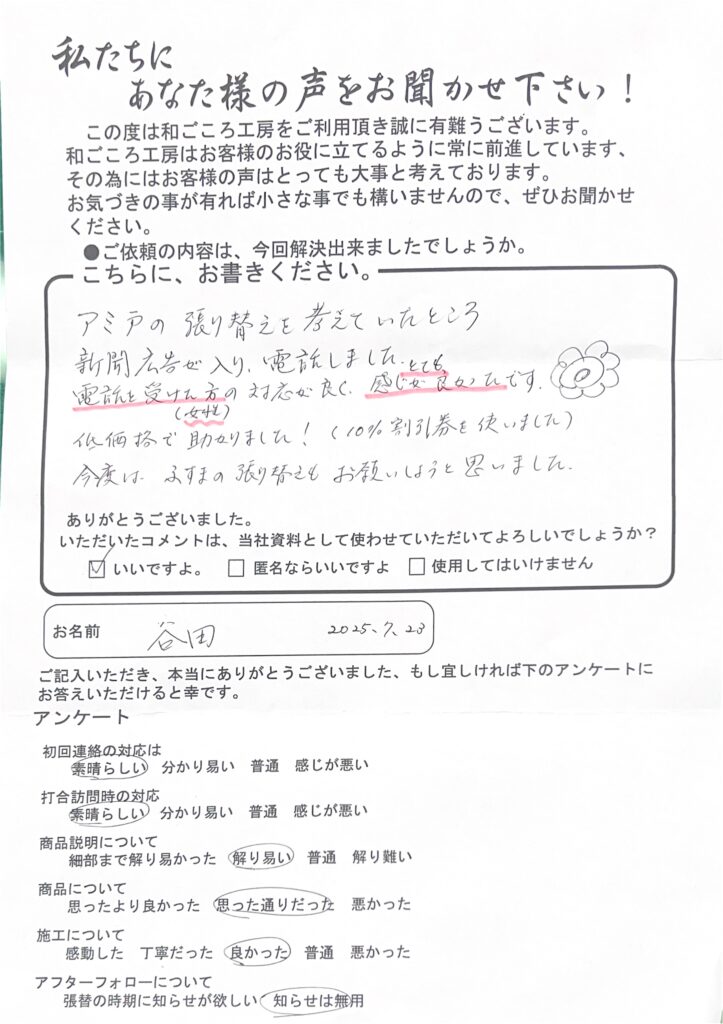 私たちに
あなた様の声をお聞かせ下さい！
この度は和ごころ工房をご利用頂き誠に有難うございます。
和ごころ工房はお客様のお役に立てるように常に前進しています、
その為にはお客様の声はとっても大事と考えております。
お気づきの事が有れば小さな事でも構いませんので、ぜひお聞かせ
ください。
●ご依頼の内容は、今回解決出来ましたでしょうか。
こちらに、お書きください。
アミ戸の張り替えを考えていたところ
新聞広告が入り、電話しました。とても
電話を受けた方の対応が良く、感じが良かったです。
(女性)
低価格で助かりました！(10%割引券を使いました)
今度は ふすまの張り替えも お願いしようと思いました。
ありがとうございました。
いただいたコメントは、当社資料として使わせていただいてよろしいでしょうか？
☑ いいですよ。 □ 匿名ならいいですよ □ 使用してはいけません
お名前 谷田 2025.7.23
ご記入いただき、本当にありがとうございました、もし宜しければ下のアンケートに
お答えいただけると幸です。
アンケート
初回連絡の対応は
素晴らしい 分かり易い 普通 感じが悪い
打合訪問時の対応
素晴らしい 分かり易い 普通 感じが悪い
商品説明について
細部まで解り易かった 解り易い 普通 解り難い
商品について
思ったより良かった 思った通りだった 悪かった
施工について
感動した 丁寧だった 良かった 普通 悪かった
アフターフォローについて
張替の時期に知らせが欲しい 知らせは無用